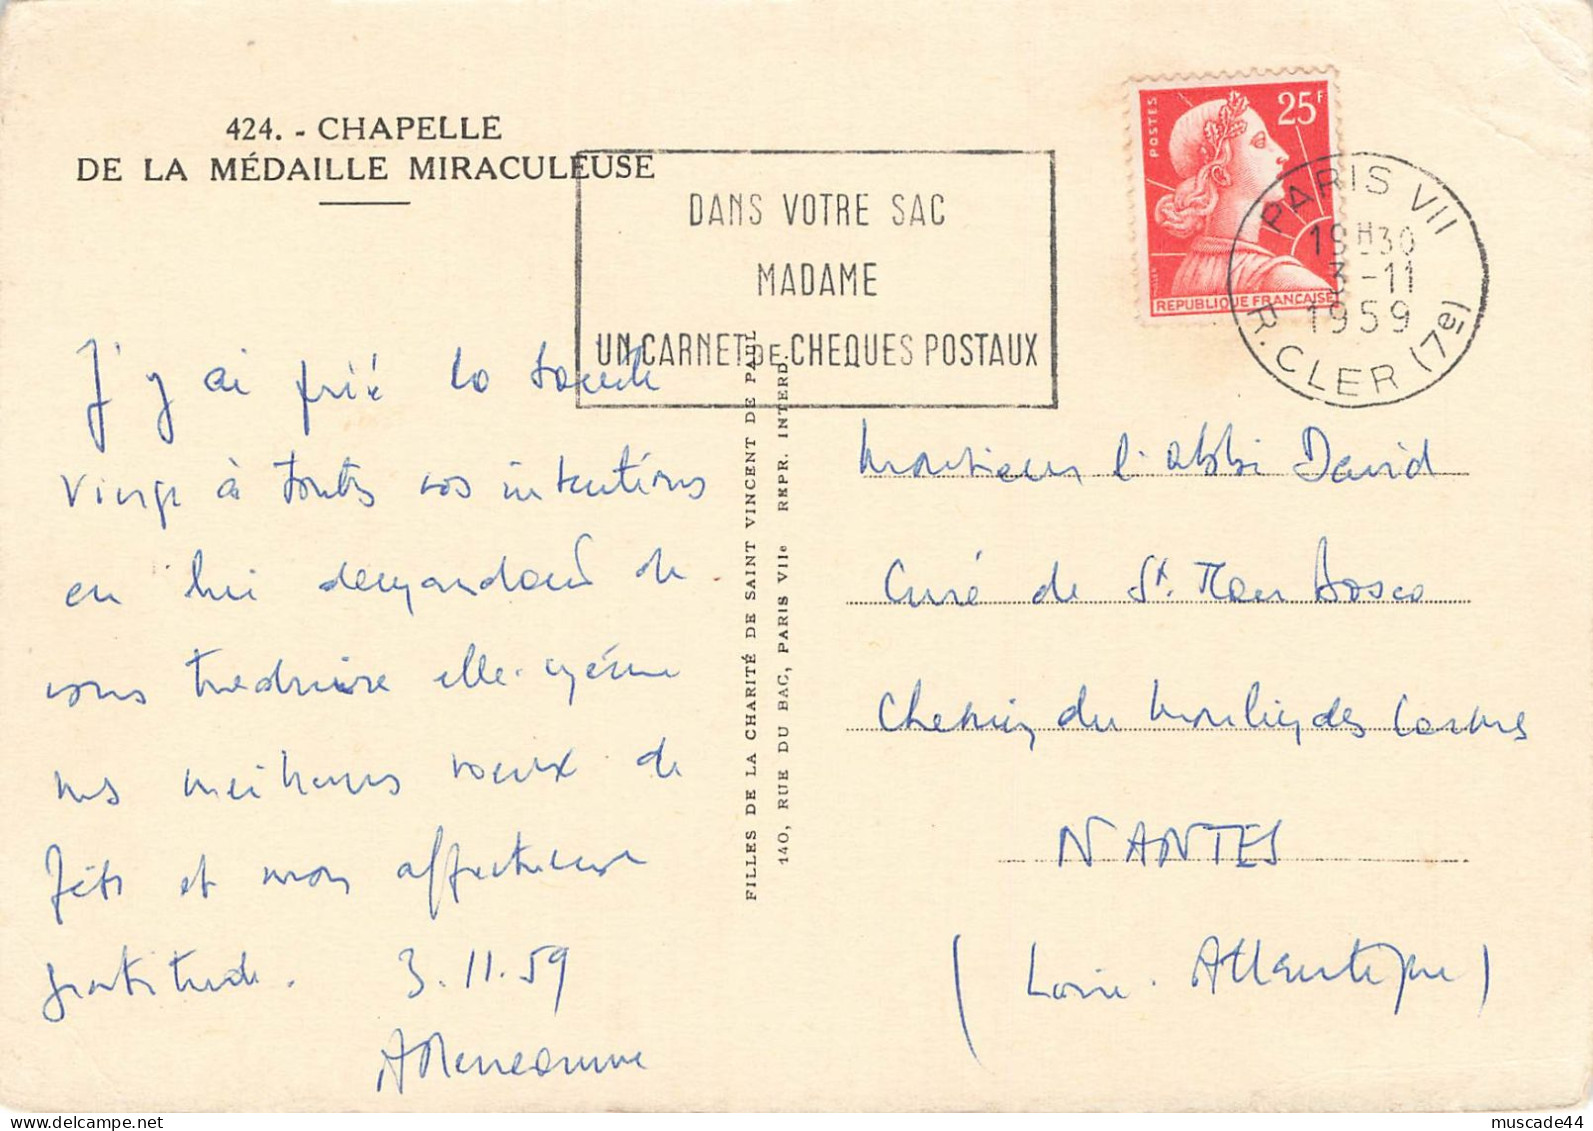 424. - CHAPELLE
DE LA MÉDAILLE MIRACULEUSE
DANS VOTRE SAC
MADAME
UN CARNET DE CHEQUES POSTAUX
POSTES
25F
REPUBLIQUE FRANÇAISE
PARIS VII
19H30
3-11
1959
R. CLER (7e)
J'y ai prié la Sainte
Vierge à toutes vos intentions
en lui demandant de
vous traduire elle-même
mes meilleurs voeux de
fête et mon affectueuse
gratitude. 3.11.59
FILLES DE LA CHARITÉ DE SAINT VINCENT DE PAUL
140, RUE DU BAC, PARIS VIIe REPR. INTERD.
Monsieur l'abbé David
Curé de St. Jean Bosco
Chemin du Moulin des Carmes
NANTES
(Loire-Atlantique)
muscade44